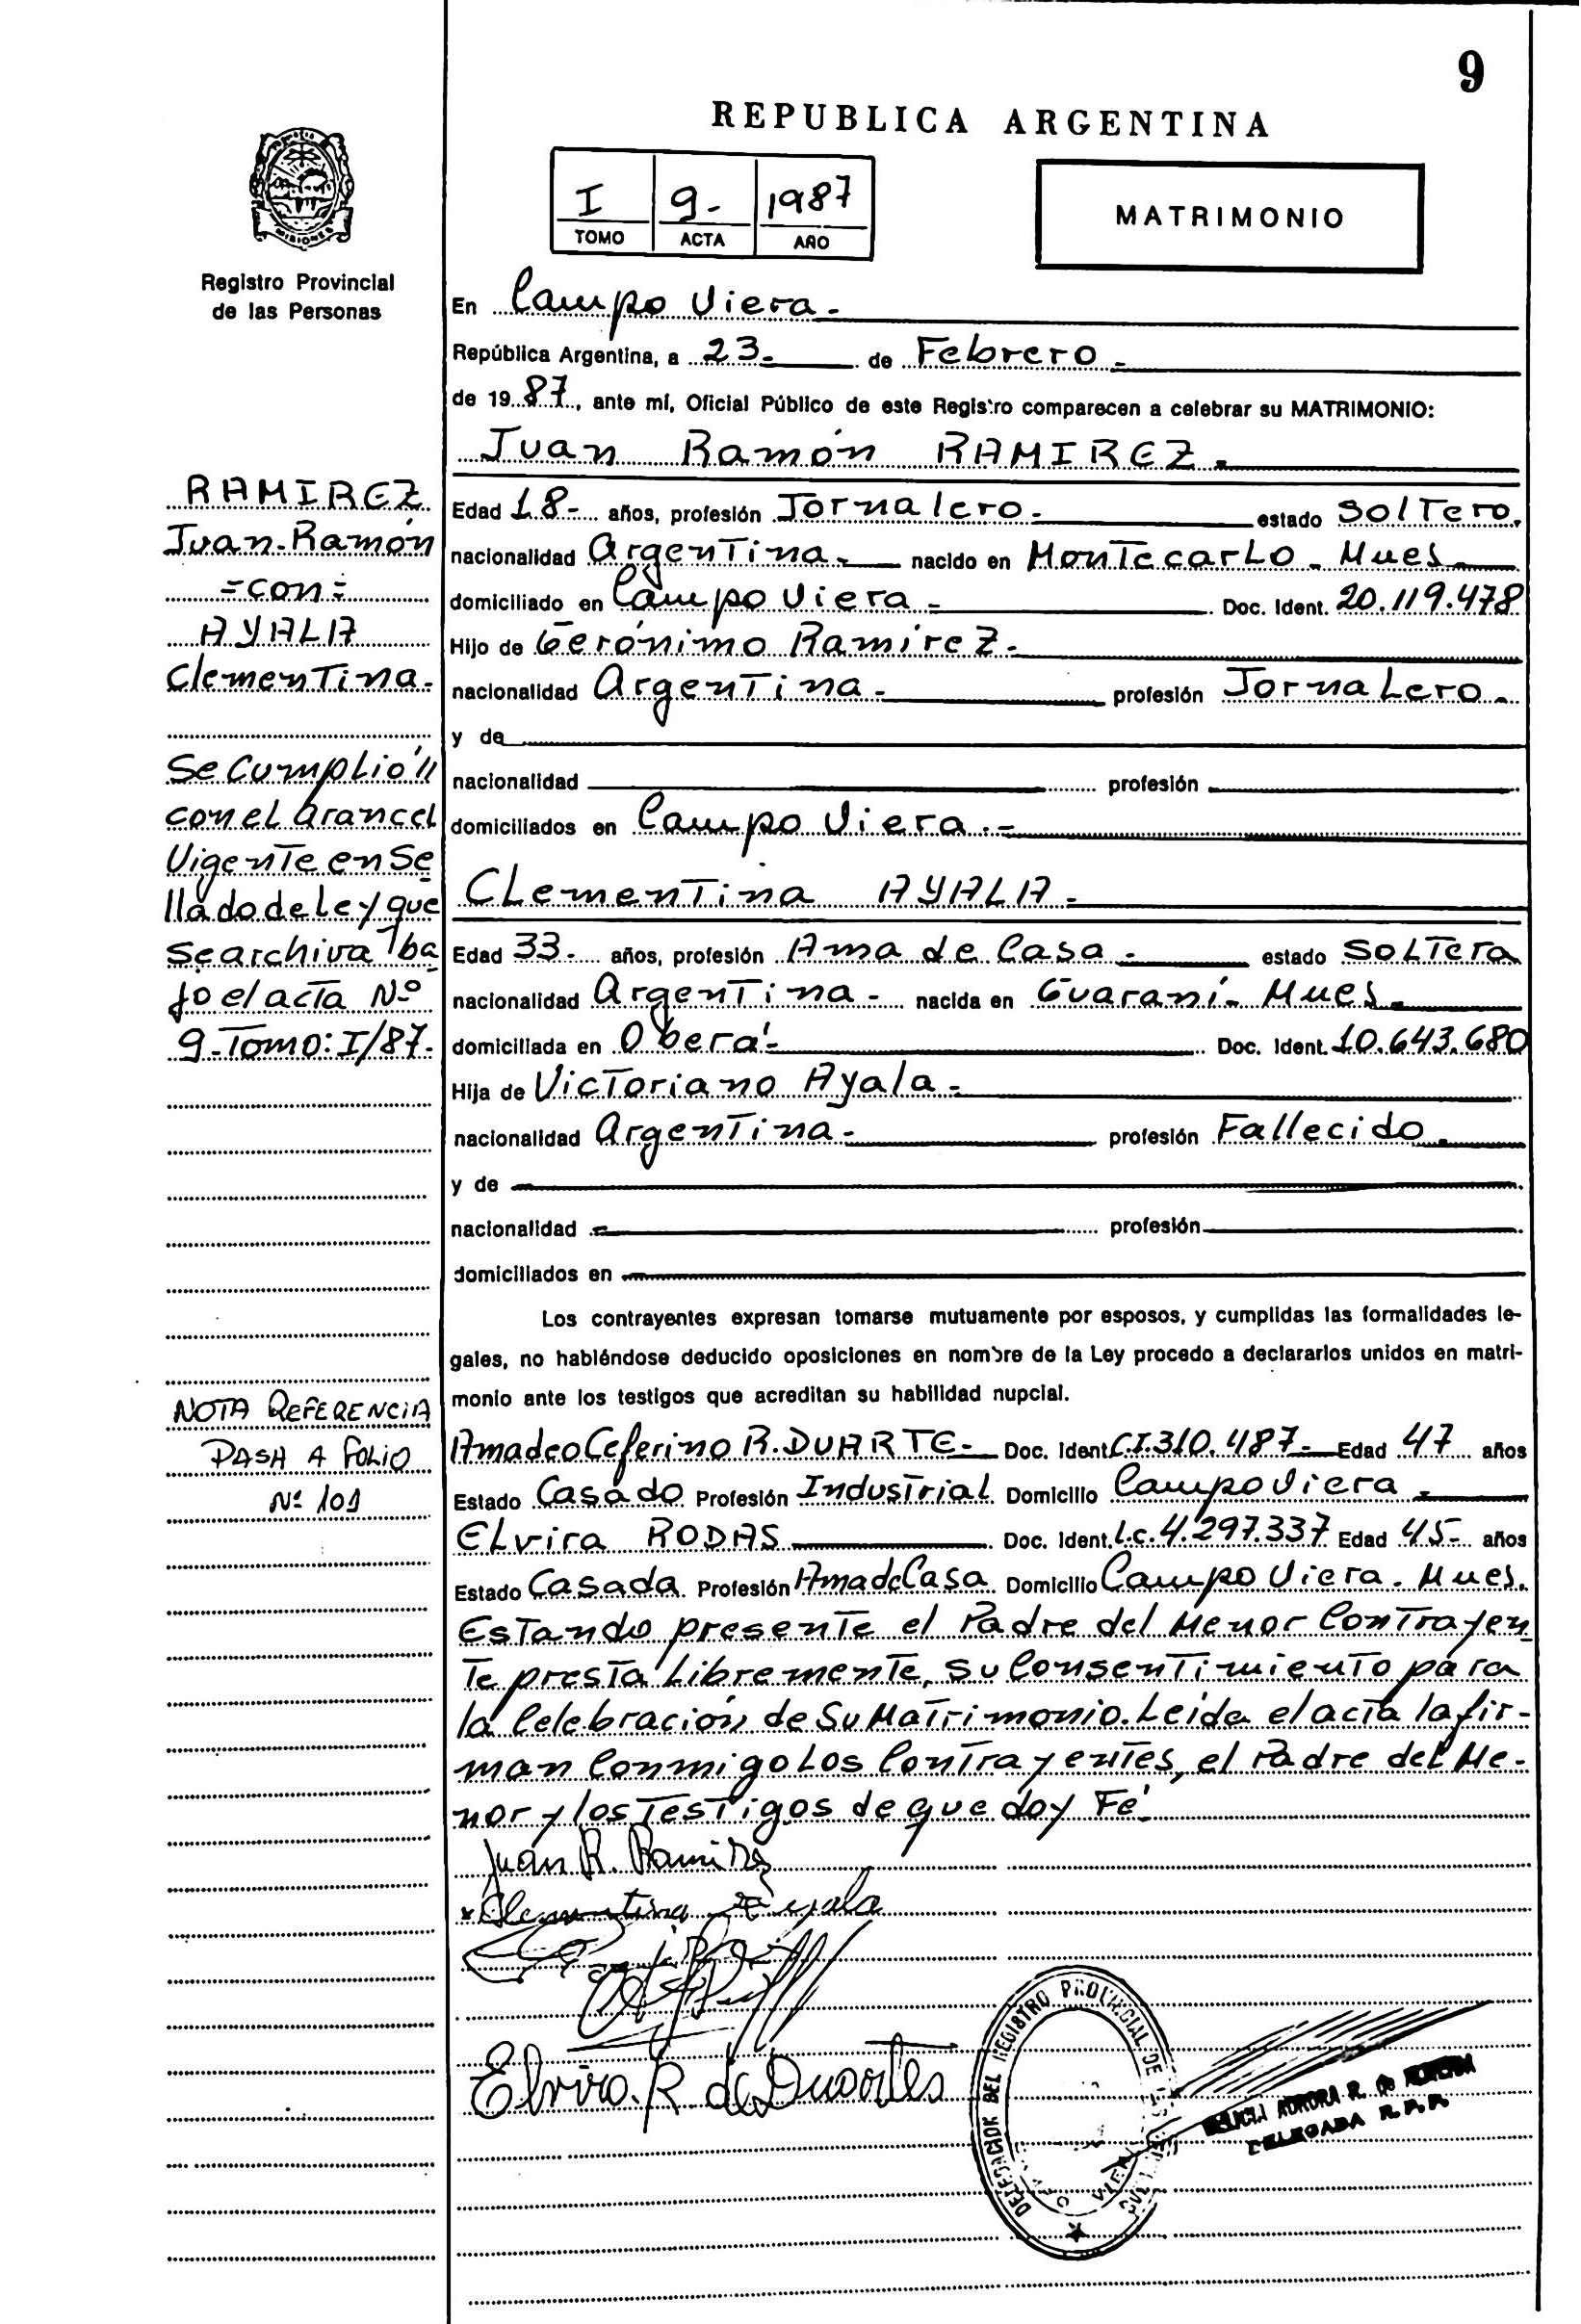 9
REPUBLICA ARGENTINA
I 9- 1987
TOMO ACTA AÑO
MATRIMONIO
MISIONES
Registro Provincial
de las Personas
En Campo Viera.-
República Argentina, a 23.- de Febrero.-
de 1987, ante mí, Oficial Público de este Registro comparecen a celebrar su MATRIMONIO:
Juan Ramón RAMIREZ.-
RAMIREZ
Juan-Ramón
=con=
AYALA
Clementina.-
Se Cumplió //
con el arancel
Vigente en Se
llado de Ley que
se archiva ba
jo el acta Nº
9-Tomo: I/87.-
Edad 18- años, profesión Jornalero.- estado Soltero.
nacionalidad Argentina.- nacido en Montecarlo - Mnes.-
domiciliado en Campo Viera.- Doc. Ident. 20.119.478
Hijo de Gerónimo Ramírez.-
nacionalidad Argentina.- profesión Jornalero.-
y de
nacionalidad profesión
domiciliados en Campo Viera.-
Clementina AYALA.-
Edad 33.- años, profesión Ama de Casa.- estado Soltera
nacionalidad Argentina.- nacida en Guaraní- Mnes.-
domiciliada en Oberá.- Doc. Ident. 10.643.680
Hija de Victoriano Ayala.-
nacionalidad Argentina.- profesión Fallecido.-
y de
nacionalidad profesión
domiciliados en
Los contrayentes expresan tomarse mutuamente por esposos, y cumplidas las formalidades le-
gales, no habiéndose deducido oposiciones en nombre de la Ley procedo a declararlos unidos en matri-
monio ante los testigos que acreditan su habilidad nupcial.
NOTA REFERENCIA
PASA A FOLIO
Nº 101
Amadeo Ceferino R. DUARTE.- Doc. Ident. C.I. 310.487.- Edad 47 años
Estado Casado Profesión Industrial Domicilio Campo Viera.-
Elvira RODAS Doc. Ident. L.C. 4.297.337 Edad 45- años
Estado Casada Profesión Ama de Casa Domicilio Campo Viera. Mnes.
Estando presente el Padre del Menor Contrayen
te presta Libremente, su Consentimiento para
la Celebración de Su Matrimonio. Leída el acta la fir-
man Conmigo Los Contrayentes, el Padre del Me-
nor y los Testigos de que doy Fé.-
Juan R. Ramirez
x Clementina Ayala
Elvira R. de Duartes
DELEGACION DEL REGISTRO PROVINCIAL DE
AURORA R. de
DELEGADA R.P.P.